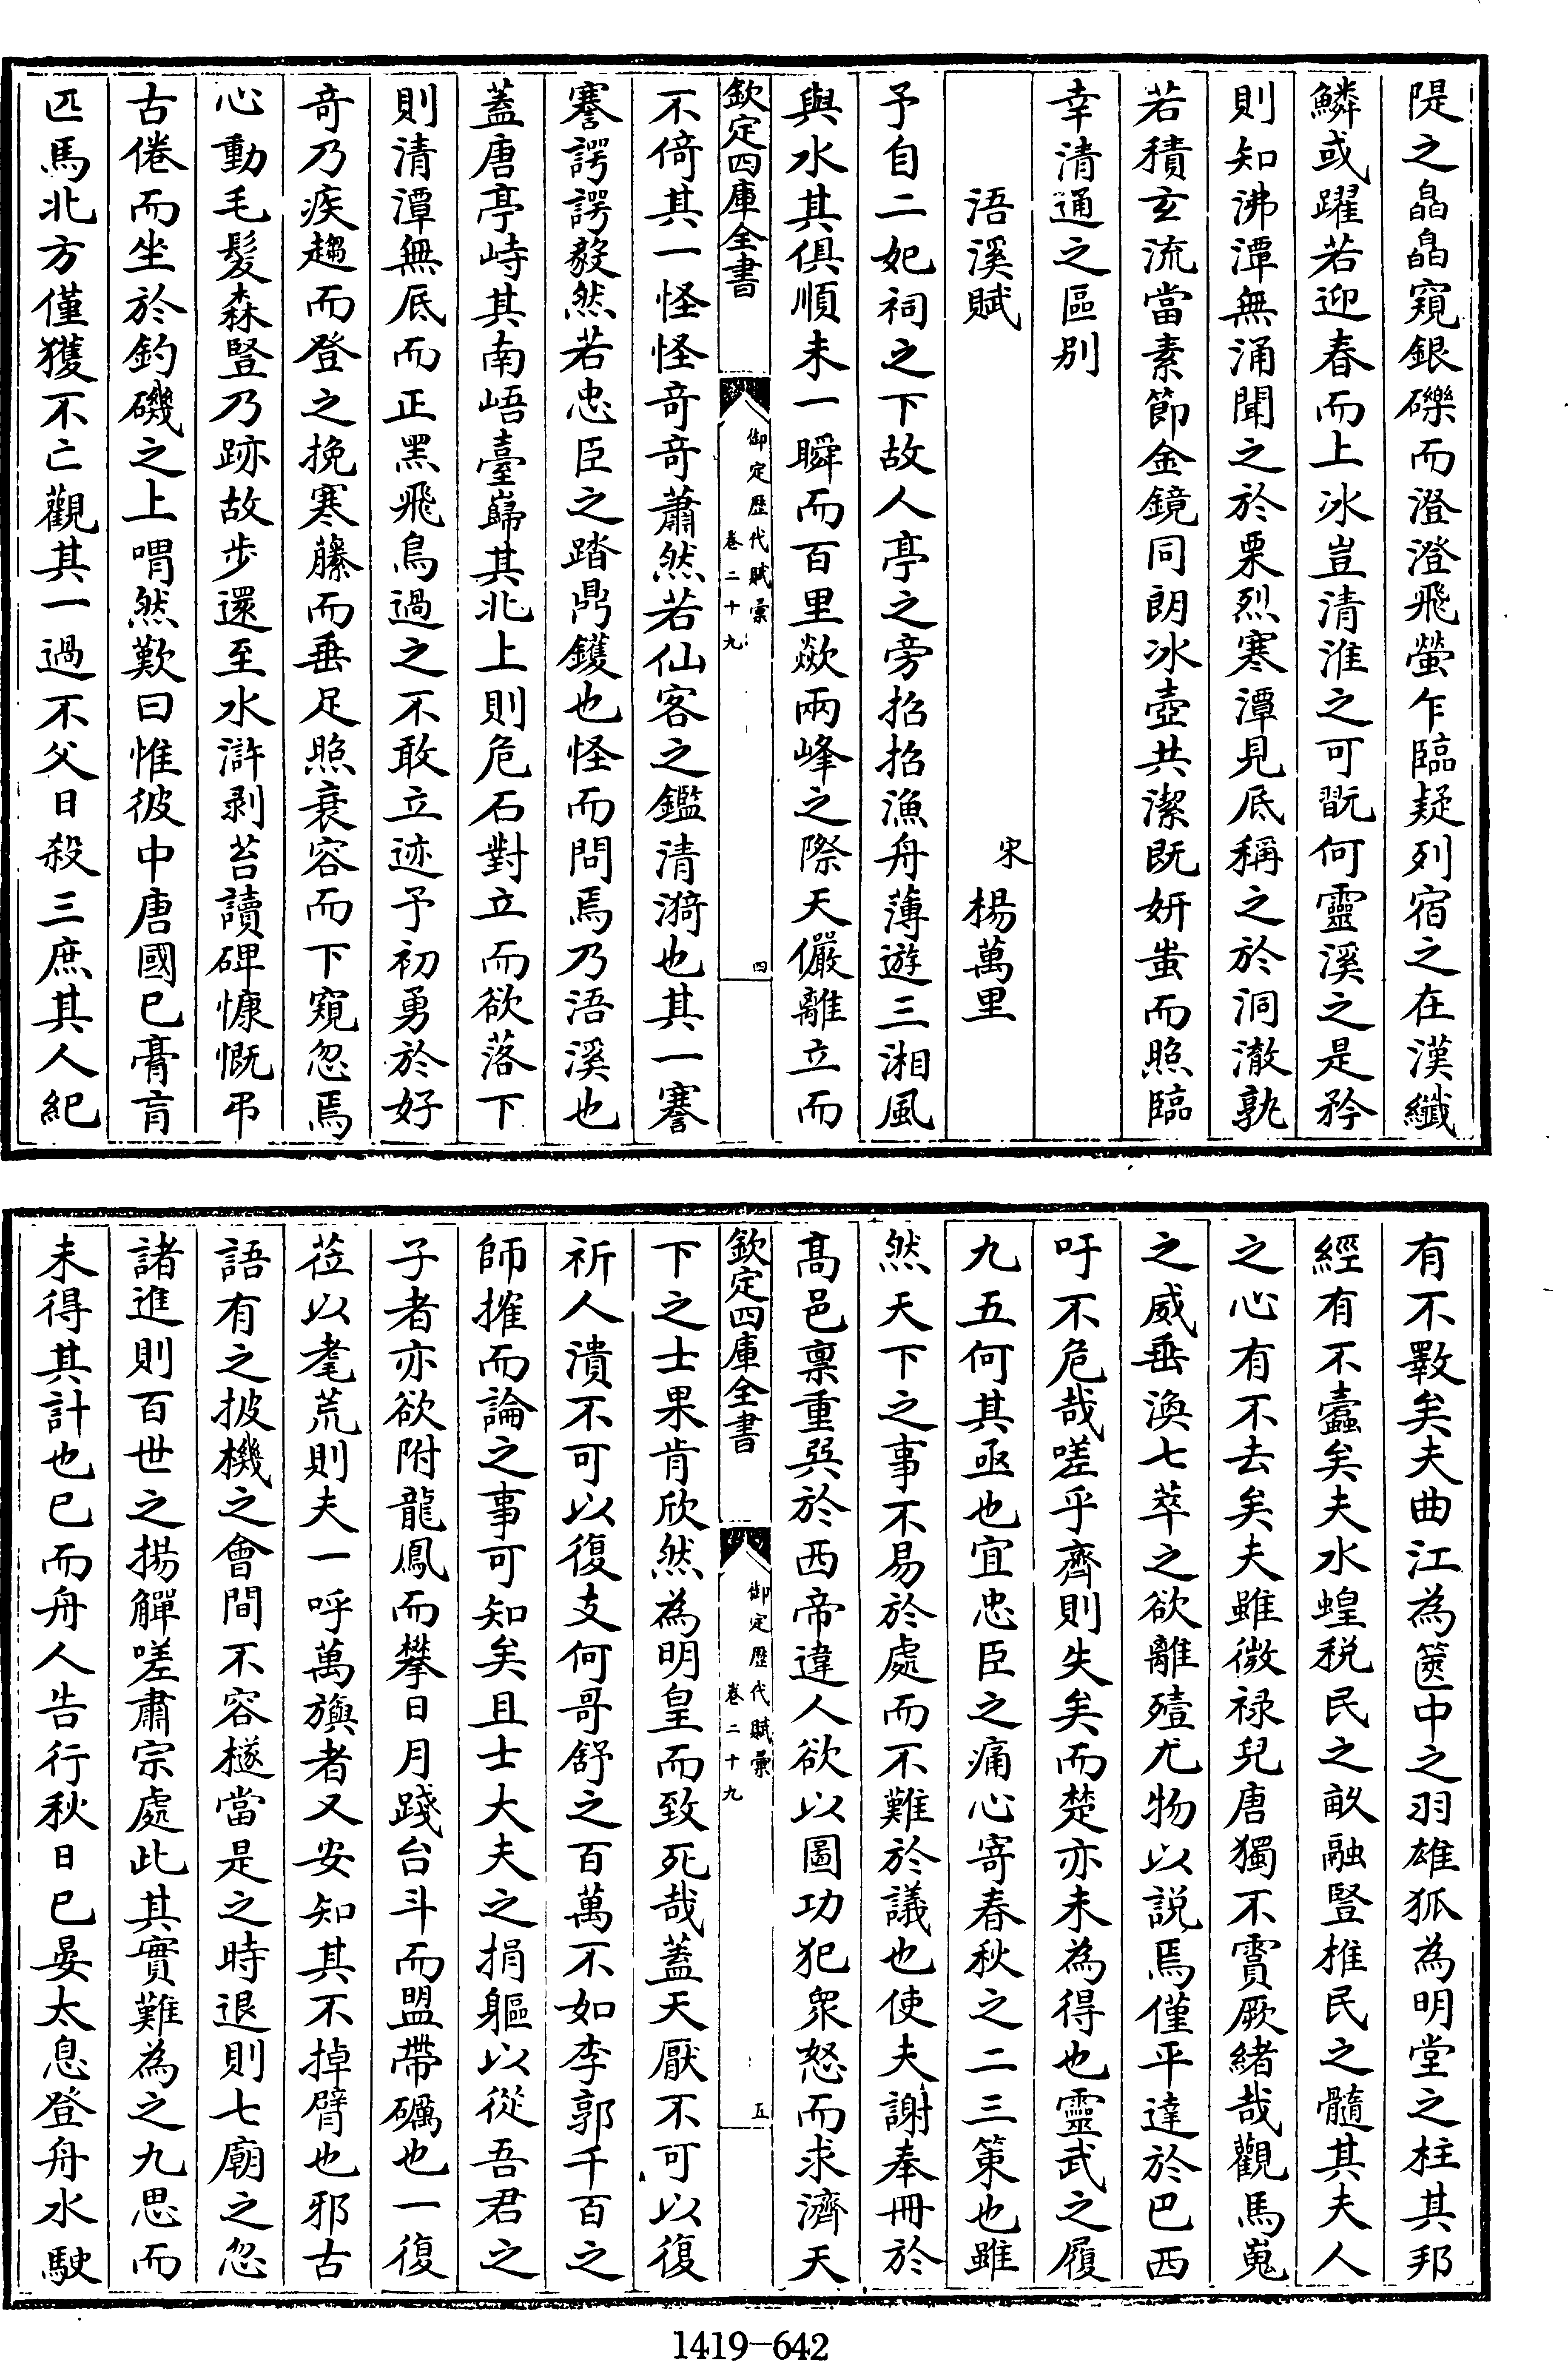 隄之皛皛窺銀礫而澄澄飛螢乍臨疑列宿之在漢纎
鱗或躍若迎春而上冰豈清淮之可翫何靈溪之是矜
則知沸潭無涌聞之於栗烈寒潭見底稱之於洞澈孰
若積玄流當素節金鏡同朗冰壺共潔既妍蚩而照臨
幸清通之區别
浯溪賦　宋楊萬里
予自二妃祠之下故人亭之旁招招漁舟薄遊三湘風
與水其俱順未一瞬而百里歘兩峰之際天儼離立而
欽定四庫全書
御定歴代賦彚
卷二十九
四
不倚其一怪怪奇奇蕭然若仙客之鑑清漪也其一謇
謇諤諤毅然若忠臣之踏鼎鑊也怪而問焉乃浯溪也
蓋唐亭峙其南峿臺巋其北上則危石對立而欲落下
則清潭無底而正黑飛鳥過之不敢立迹予初勇於好
奇乃疾趨而登之挽寒藤而垂足照衰容而下窺忽焉
心動毛髮森豎乃跡故步還至水滸剥苔讀碑慷慨弔
古倦而坐於釣磯之上喟然歎曰惟彼中唐國已膏肓
匹馬北方僅獲不亡觀其一過不父日殺三庶其人紀
有不斁矣夫曲江為篋中之羽雄狐為明堂之柱其邦
經有不蠹矣夫水蝗税民之畝融豎椎民之髓其夫人
之心有不去矣夫雖微禄兒唐獨不霣厥緒哉觀馬嵬
之威垂渙七萃之欲離殪尤物以説焉僅平達於巴西
吁不危哉嗟乎齊則失矣而楚亦未為得也靈武之履
九五何其亟也宜忠臣之痛心寄春秋之二三策也雖
然天下之事不易於處而不難於議也使夫謝奉冊於
髙邑禀重巽於西帝違人欲以圖功犯衆怒而求濟天
欽定四庫全書
御定歴代賦彚
卷二十九
五
下之士果肯欣然為明皇而致死哉蓋天厭不可以復
祈人潰不可以復支何哥舒之百萬不如李郭千百之
師摧而論之事可知矣且士大夫之捐軀以從吾君之
子者亦欲附龍鳳而攀日月踐台斗而盟帶礪也一復
莅以耄荒則夫一呼萬旟者又安知其不掉臂也邪古
語有之投機之會間不容檖當是之時退則七廟之忽
諸進則百世之揚觶嗟肅宗處此其實難為之九思而
未得其計也已而舟人告行秋日已晏太息登舟水駛
1419-642